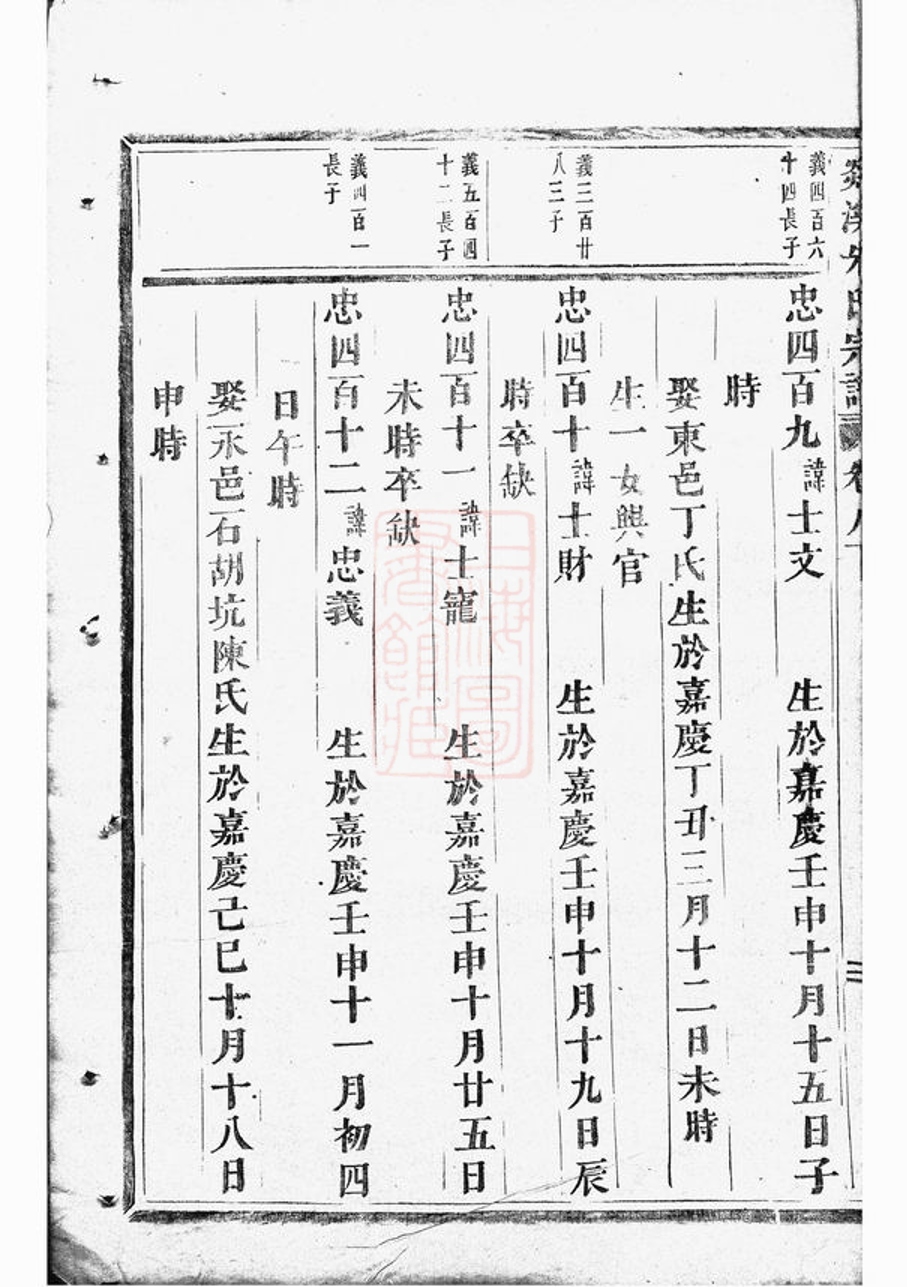 氏宗譜
義四百六
十四長子
忠四百九諱士文 生於嘉慶壬申十月十五日子
時
娶東邑丁氏生於嘉慶丁丑三月十二日未時
生一女興官
義三百廿
八三子
忠四百十諱士財 生於嘉慶壬申十月十九日辰
時卒缺
義五百四
十二長子
忠四百十一諱士寵 生於嘉慶壬申十月廿五日
未時卒缺
義四百一
長子
忠四百十二諱忠義 生於嘉慶壬申十一月初四
日午時
娶永邑石胡坑陳氏生於嘉慶己巳十月十八日
申時
上海圖
書館藏